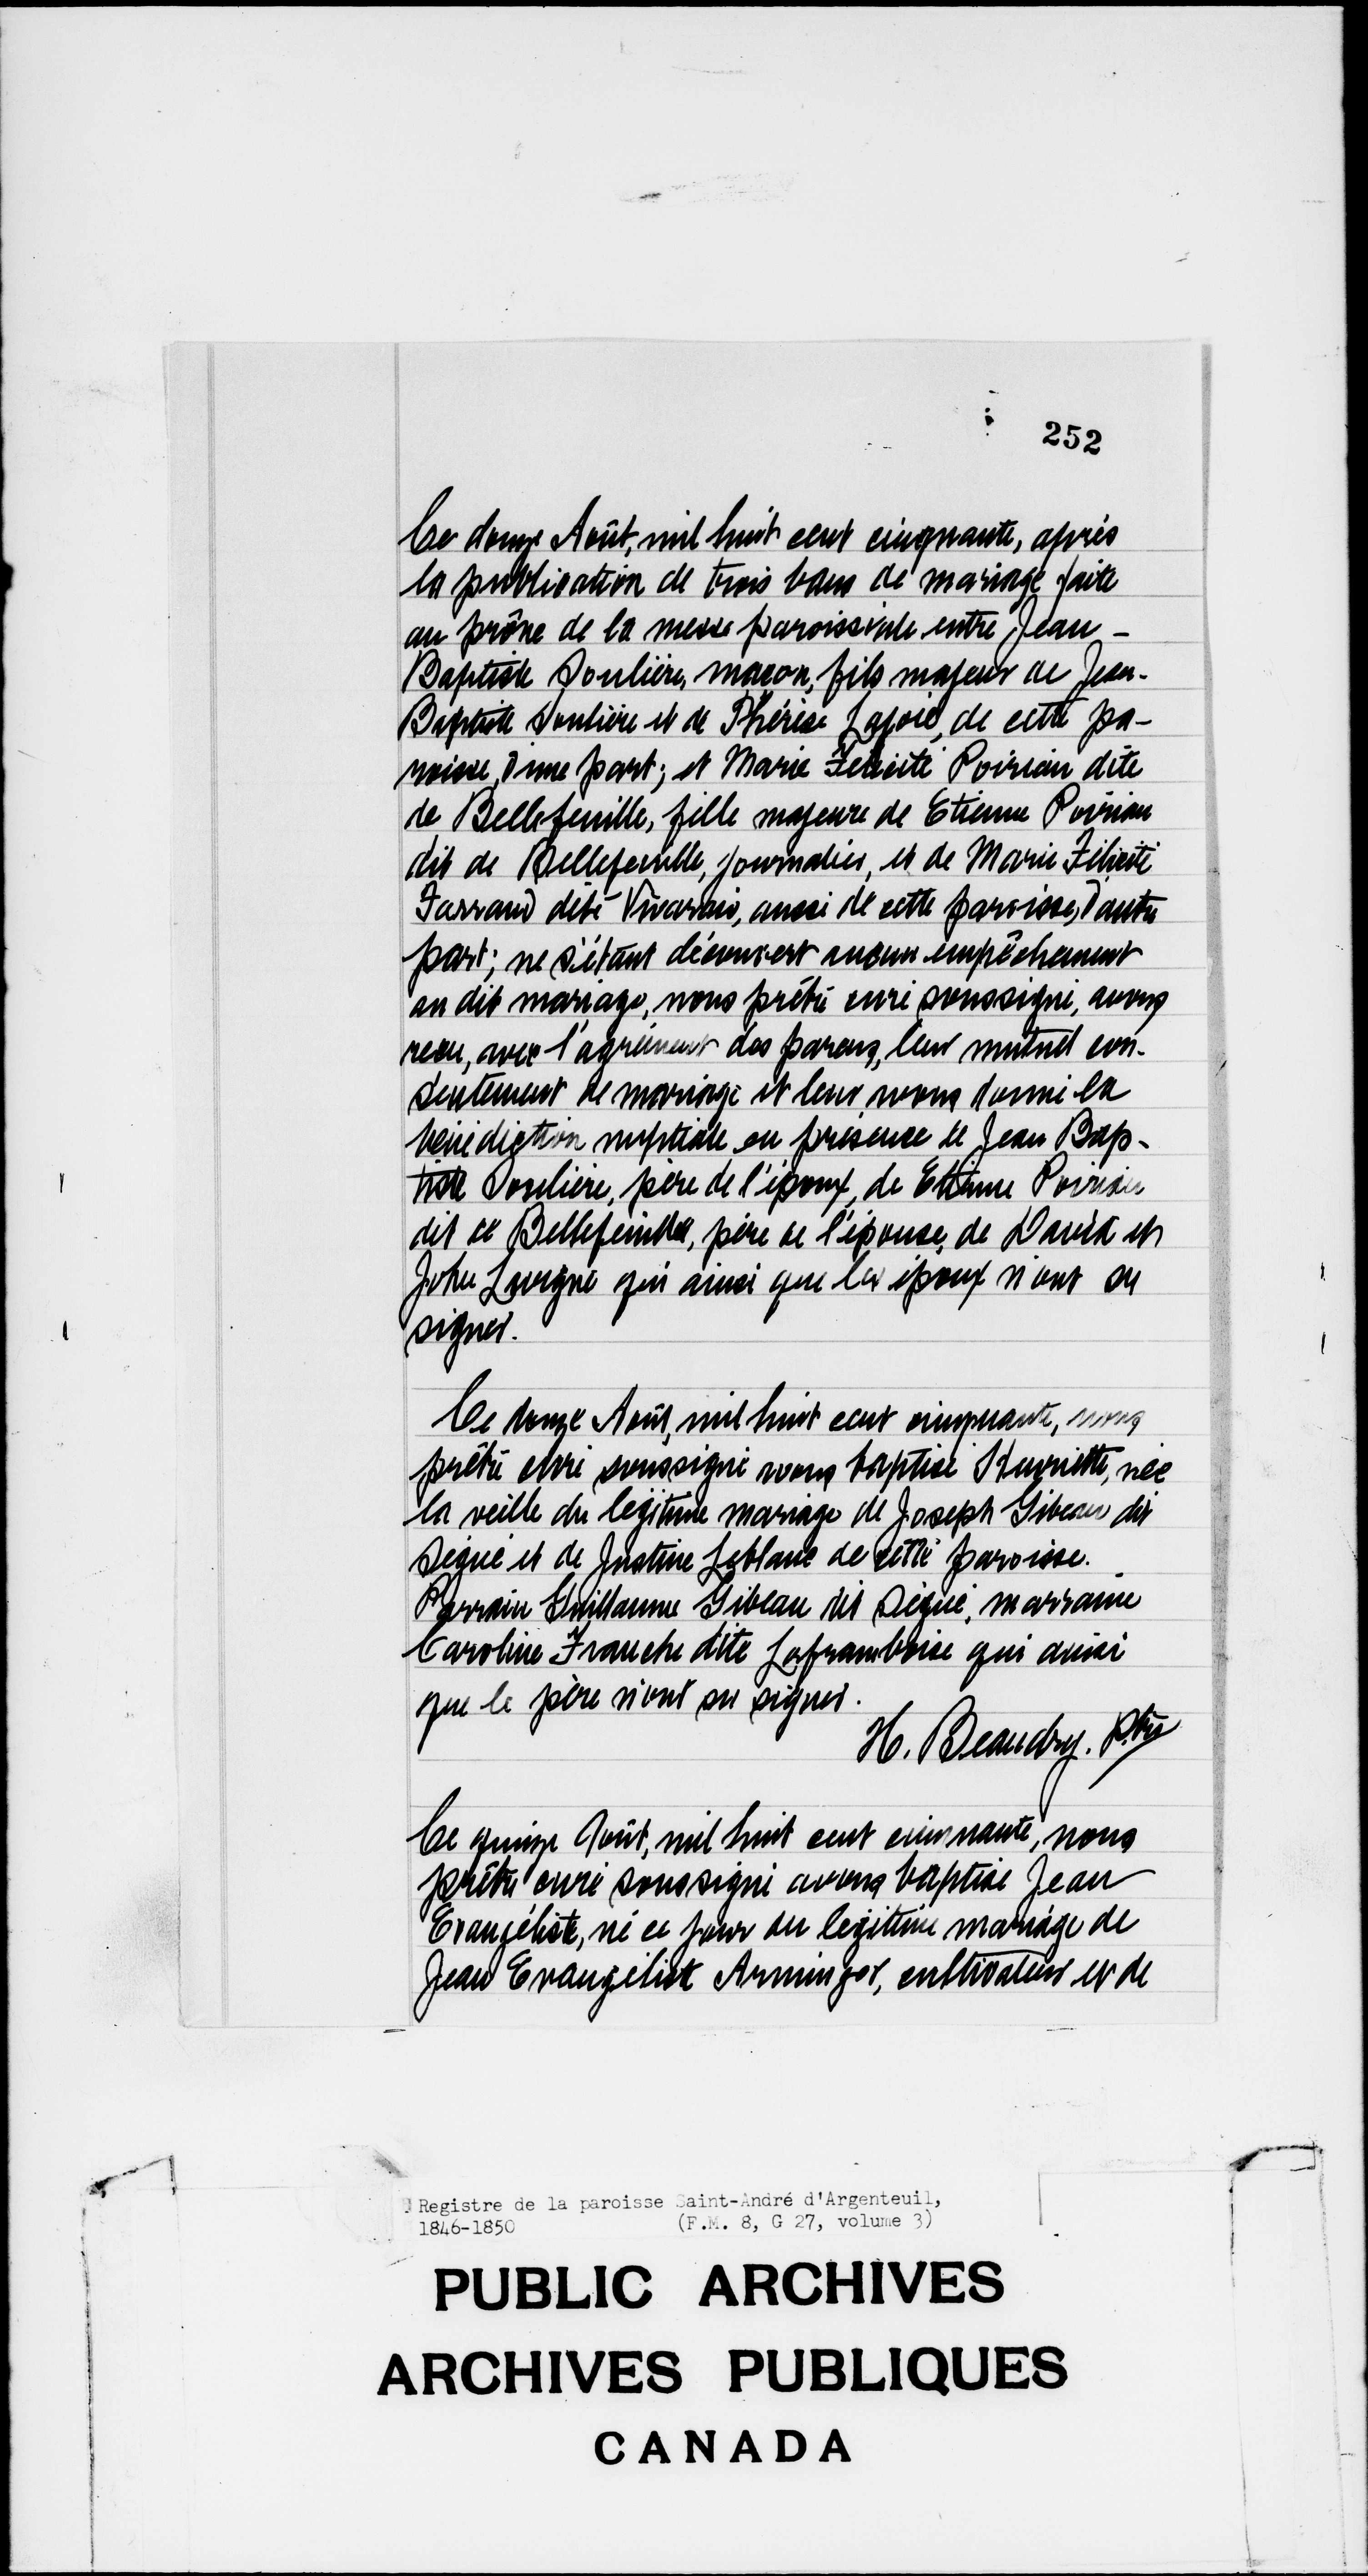 252
Ce douze Août, mil huit cent cinquante, après
la publication de trois bans de mariage faite
au prône de la messe paroissiale entre Jean-
Baptiste Soulière, maçon, fils majeur de Jean-
Baptiste Soulière et de Thérèse Lajoie, de cette pa-
roisse, d'une part; et Marie Félicité Poirian dite
de Bellefeuille, fille majeure de Etienne Poirian
dit de Bellefeuille, journalier, et de Marie Félicité
Farrand dite Vivarais, aussi de cette paroisse, d'autre
part; ne s'étant découvert aucun empêchement
au dit mariage, nous prêtre curé soussigné, avons
recu, avec l'agrément des parens, leur mutuel con-
sentement de mariage et leur avons donné la
bénédiction nuptiale en présence de Jean Bap-
tiste Soulière, père de l'époux, de Etienne Poirian
dit de Bellefeuille, père de l'épouse, de David et
John Lavigne qui ainsi que les époux n'ont su
signer.
Ce douze Août, mil huit cent cinquante, nous
prêtre curé soussigné avons baptisé Henriette, née
la veille du légitime mariage de Joseph Gibeau dit
Seguè et de Justine Leblanc de cette paroisse.
Parrain Guillaume Gibeau dit Seguè, marraine
Caroline Franche dite Laframboise qui ainsi
que le père n'ont su signer.
H. Beaudry. Ptre
Ce quinze Août, mil huit cent cinquante, nous
prêtre curé soussigné avons baptisé Jean
Evangéliste, né ce jour du légitime mariage de
Jean Evangéliste Arminger, cultivateur et de
Registre de la paroisse Saint-André d'Argenteuil,
1846-1850 (F.M. 8, G 27, volume 3)
PUBLIC ARCHIVES
ARCHIVES PUBLIQUES
CANADA